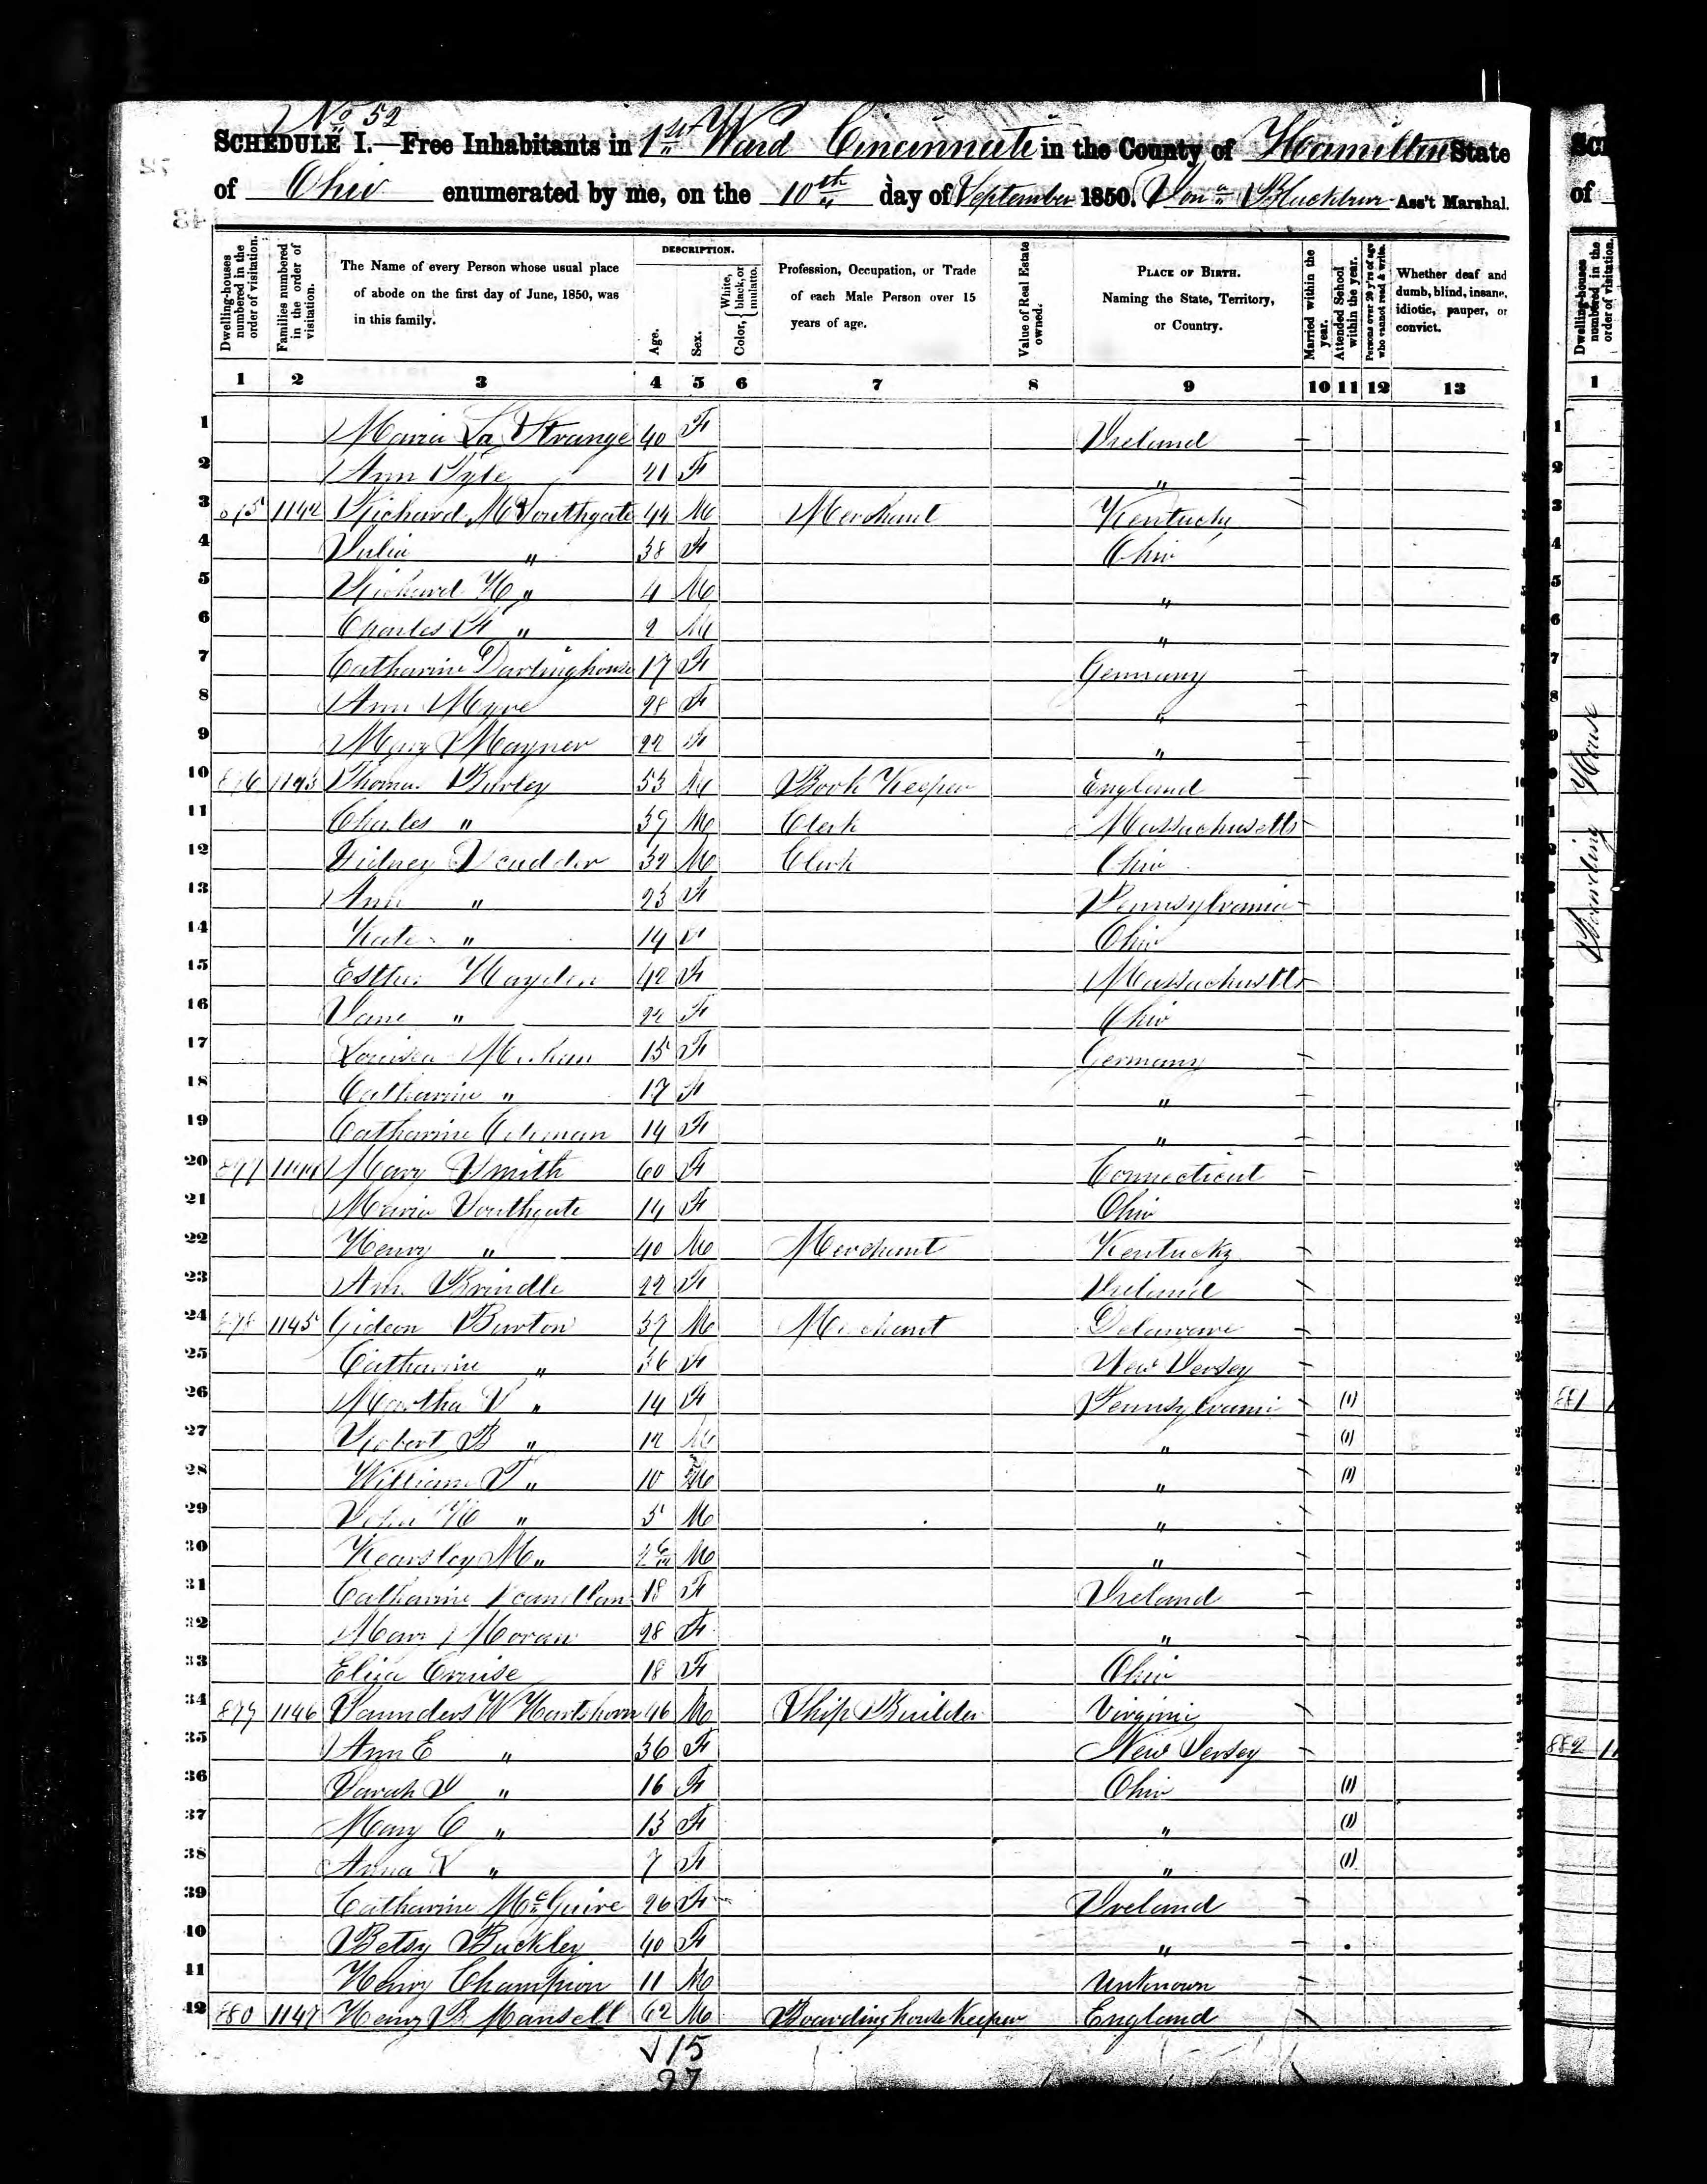 No 52
SCHEDULE I.—Free Inhabitants in 1st Ward Cincinnati in the County of Hamilton State
of Ohio enumerated by me, on the 10th day of September 1850. Ass't Marshal.
Dwelling-houses numbered in the order of visitation.
Families numbered in the order of visitation.
The Name of every Person whose usual place of abode on the first day of June, 1850, was in this family.
DESCRIPTION.
Age.
Sex.
Color, White, black, or mulatto.
Profession, Occupation, or Trade of each Male Person over 15 years of age.
Value of Real Estate owned.
PLACE OF BIRTH. Naming the State, Territory, or Country.
Married within the year.
Attended School within the year.
Persons over 20 y'rs of age who cannot read & write.
Whether deaf and dumb, blind, insane, idiotic, pauper, or convict.
1 2 3 4 5 6 7 8 9 10 11 12 13
1 Maria La Strange 40 F Ireland
2 Ann 21 F "
3 1142 Richard M Southgate 44 M Merchant Kentucky
4 Julia " 38 F Ohio
5 Richard H " 4 M "
6 Charles " 2 M "
7 Catharine Darlinghouse 17 F Germany
8 Ann 28 F "
9 Mary Mayner 22 F "
10 876 1143 Thomas 53 M Book Keeper England
11 Charles " 39 M Clerk Massachusetts
12 Sidney Scudder 32 M Clerk Ohio
13 Ann " 23 F Pennsylvania
14 Kate " 14 F Ohio
15 Esther Hayden 42 F Massachusetts
16 Jane " 22 F Ohio
17 Louisa 15 F Germany
18 Catharine " 17 F "
19 Catharine Coleman 14 F "
20 877 1144 Mary Smith 60 F Connecticut
21 Maria Southgate 14 F Ohio
22 Henry " 40 M Merchant Kentucky
23 Ann Brindle 22 F Ireland
24 878 1145 Gideon Burton 37 M Merchant Delaware
25 Catharine " 36 F New Jersey
26 Martha " 14 F Pennsylvania (1)
27 Robert B " 12 M " (1)
28 William T " 10 M " (1)
29 John H " 5 M "
30 Kearsley M " 2 6/12 M "
31 Catharine Scandlan 18 F Ireland
32 Mary Moran 28 F "
33 Eliza Cruise 18 F Ohio
34 879 1146 Saunders W Hartshorn 46 M Ship Builder Virginia
35 Ann E " 36 F New Jersey
36 Sarah " 16 F Ohio (1)
37 Mary C " 13 F " (1)
38 Anna " 7 F " (1)
39 Catharine McGuire 26 F Ireland
40 Betsy Buckley 40 F "
41 Henry Champion 11 M Unknown
42 880 1147 Henry B Mansell 62 M Boarding house Keeper England
15
27
of
Dwelling-houses numbered in the order of visitation.
1
Boarding House
881
882